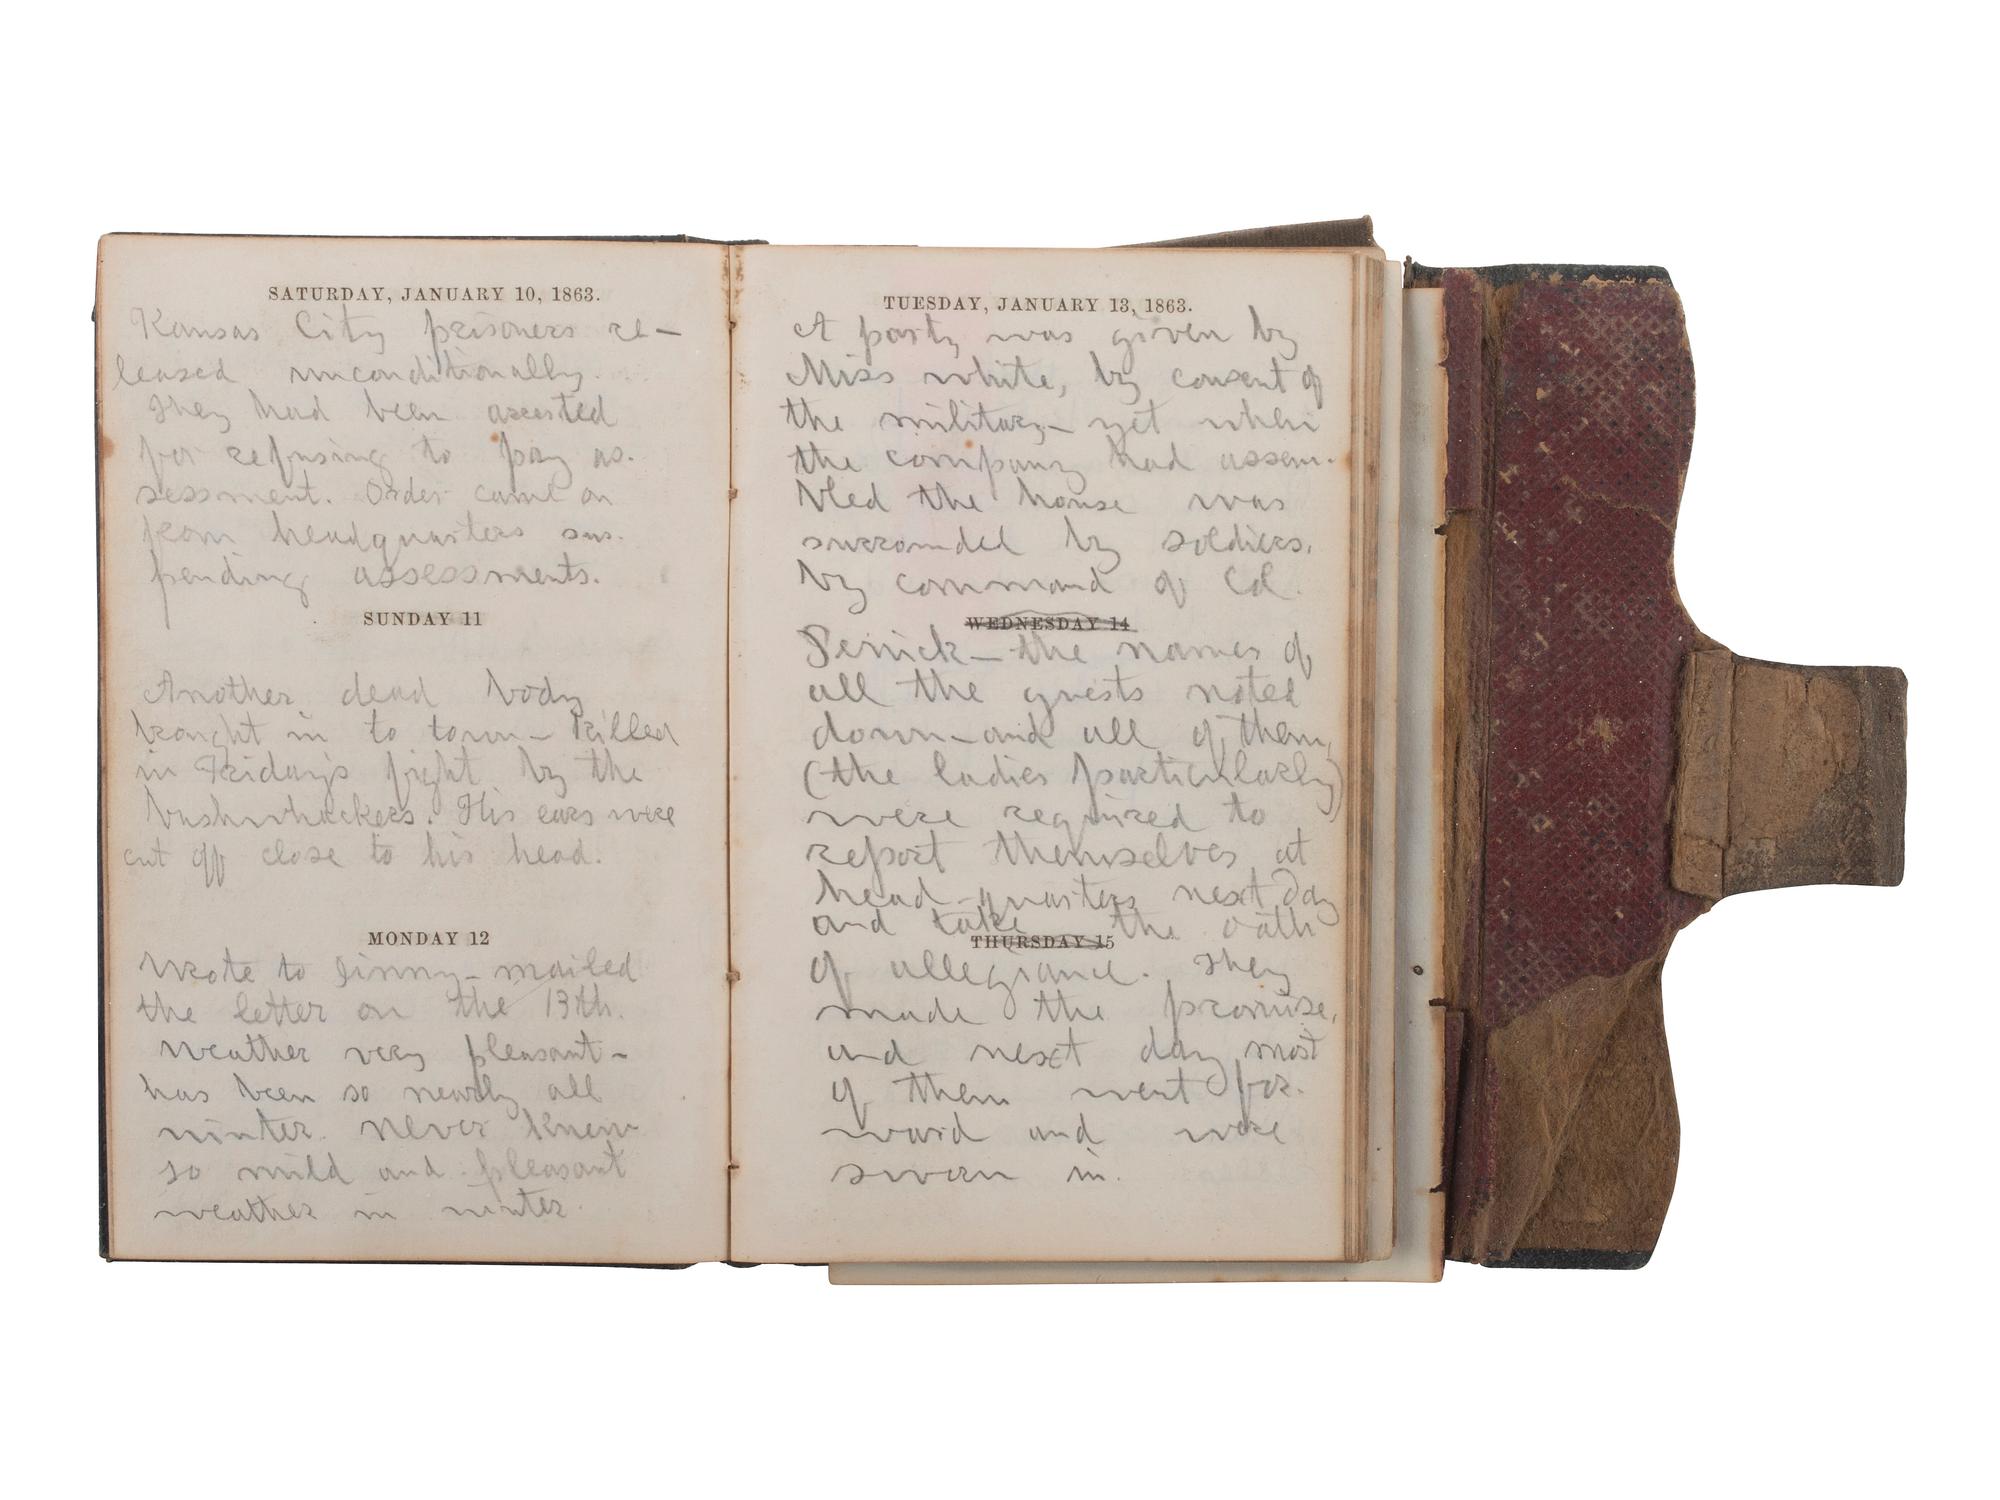 SATURDAY, JANUARY 10, 1863.
Kansas City prisoners re-
leased unconditionally.
They had been arrested
for refusing to pay as-
sessment. Order came on
from headquarters sus-
pending assessments.
SUNDAY 11
Another dead body
brought in to town - killed
in Friday's fight by the
bushwhackers. His ears were
cut off close to his head.
MONDAY 12
Wrote to Jinny - mailed
the letter on the 13th.
Weather very pleasant -
has been so nearly all
winter. Never knew
so mild and pleasant
weather in winter.
TUESDAY, JANUARY 13, 1863.
A party was given by
Miss White, by consent of
the military - yet when
the company had assem-
bled the house was
surrounded by soldiers,
by command of Col.
WEDNESDAY 14
Penick - the names of
all the guests noted
down - and all of them,
(the ladies particularly)
were required to
report themselves at
head-quarters next day
and take the oath
THURSDAY 15
of allegiance. They
made the promise,
and next day most
of them went for-
ward and were
sworn in.